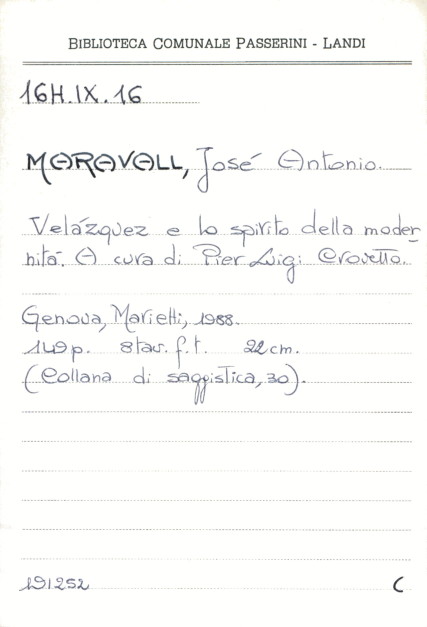 BIBLIOTECA COMUNALE PASSERINI - LANDI
16H.IX.16
MARAVALL, José Antonio.
Velázquez e lo spirito della moder-
nitá. A cura di Pier Luigi Crovetto.
Genova, Marietti, 1988.
149p. 8tav. f.t. 22cm.
(Collana di saggistica, 30).
191252
C